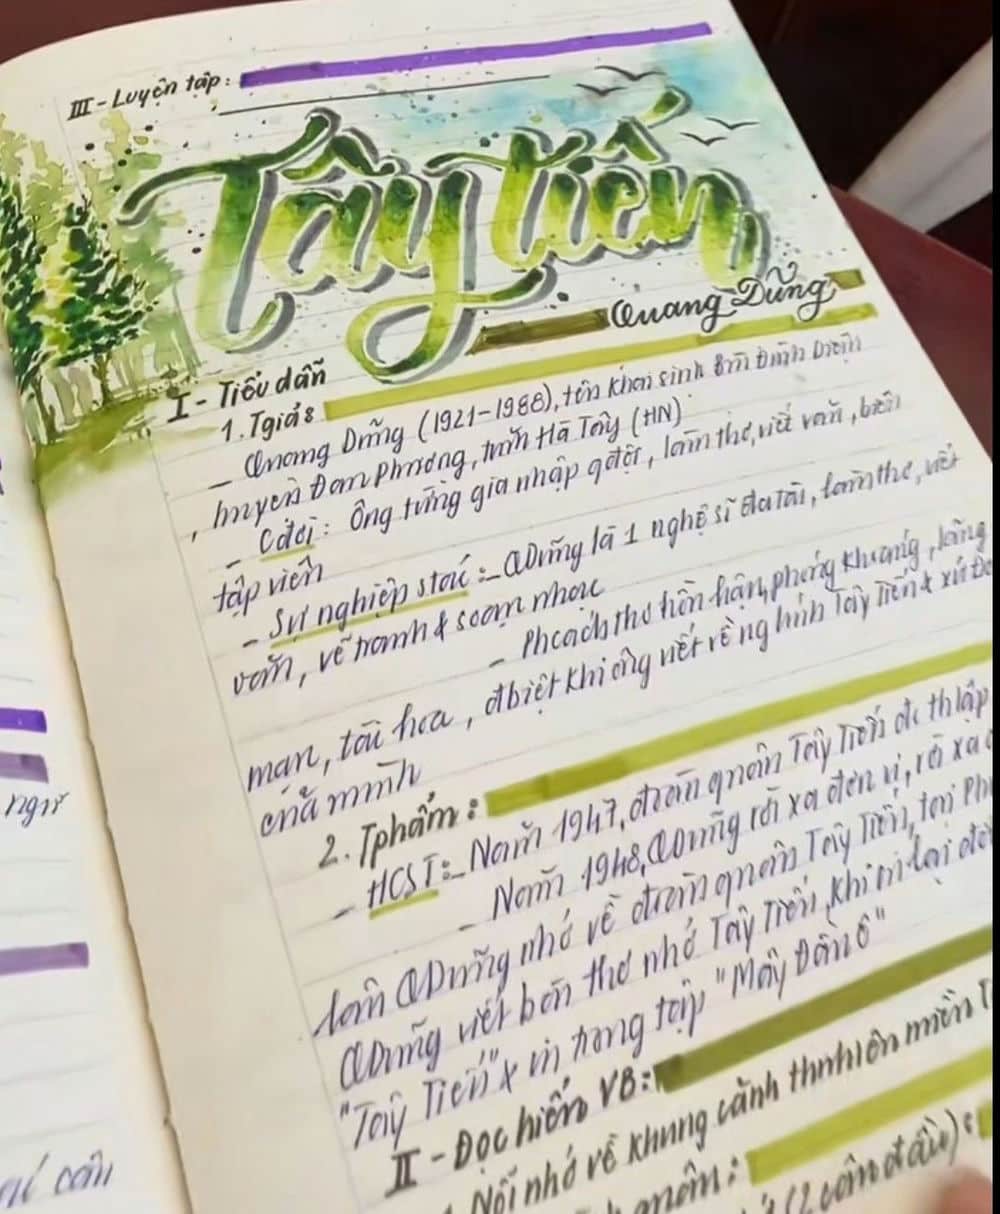 III - Luyện tập:
Tây Tiến
Quang Dũng
I - Tiểu dẫn
1. Tgiả:
- Quang Dũng (1921-1988), tên khai sinh Bùi Đình Diệm
, huyện Đan Phượng, tỉnh Hà Tây (HN)
- Cđời: Ông từng gia nhập qđội, làm thơ, viết văn, biên
tập viên
- Sự nghiệp stác: - QDũng là 1 nghệ sĩ đa tài, làm thơ, viết
văn, vẽ tranh & soạn nhạc
- Phcách thơ hồn hậu, phóng khoáng, lãng
mạn, tài hoa, đbiệt khi ông viết về ng lính Tây Tiến & xứ Đo
của mình
2. Tphẩm:
- HCST: - Năm 1947, đoàn quân Tây Tiến đc th lập
- Năm 1948, QDũng rời xa đơn vị, rồi xa
QDũng nhớ về đoàn quân Tây Tiến, tại Ph
QDũng viết bài thơ nhớ Tây Tiến, khi in lại
"Tây Tiến" x in trong tập "Mây Đầu ô"
II - Đọc hiểu VB:
Nỗi nhớ về khung cảnh thnhiên miền T
(2 câu đầu):
ngữ
câu